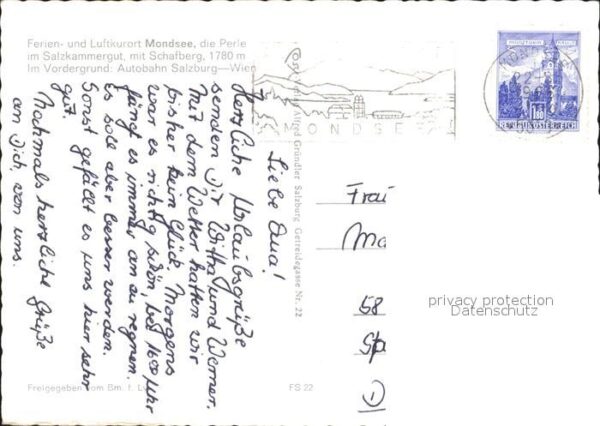 Ferien- und Luftkurort Mondsee, die Perle
im Salzkammergut, mit Schafberg, 1780 m
Im Vordergrund: Autobahn Salzburg—Wien
MONDSEE
REPUBLIK ÖSTERREICH
1.80
Alfred Gründler Salzburg Getreidegasse Nr. 22
Liebe Oma!
Herzliche Urlaubsgrüße
senden Dir und Werner.
Mit dem Wetter hatten wir
bisher kein Glück. Morgens
war es richtig schön, bei Uhr
fängt es immer an zu regnen.
Es soll aber besser werden.
Sonst gefällt es uns hier sehr
gut.
Nochmals herzliche Grüße
an Dich, von uns.
Frau
Ma
58
privacy protection
Datenschutz
Freigegeben vom Bm. f. Lv.
FS 22